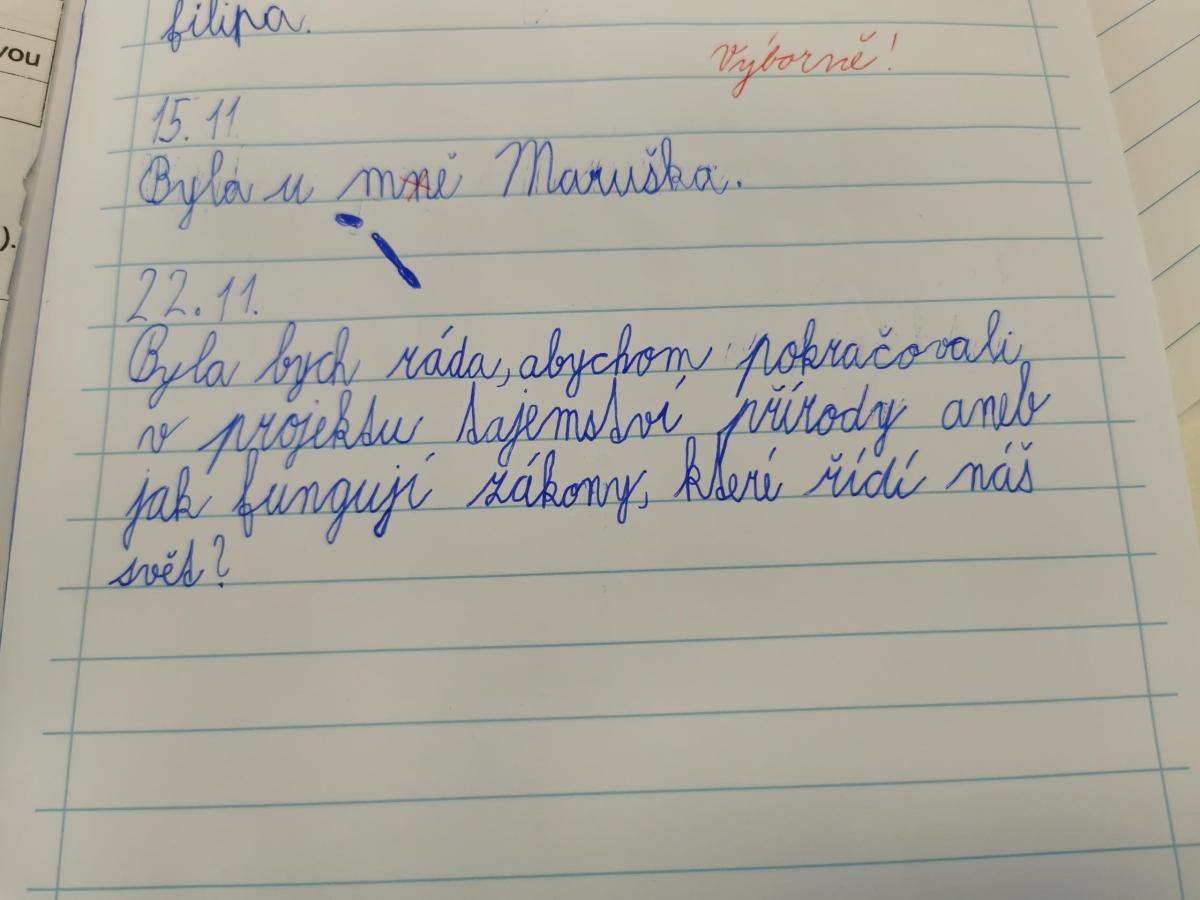 filipa.
you
Výborně!
15. 11
Byla u mně Maruška.
).
22. 11.
Byla bych ráda, abychom pokračovali
v projektu tajemství přírody aneb
jak fungují zákony, které řídí náš
svět?